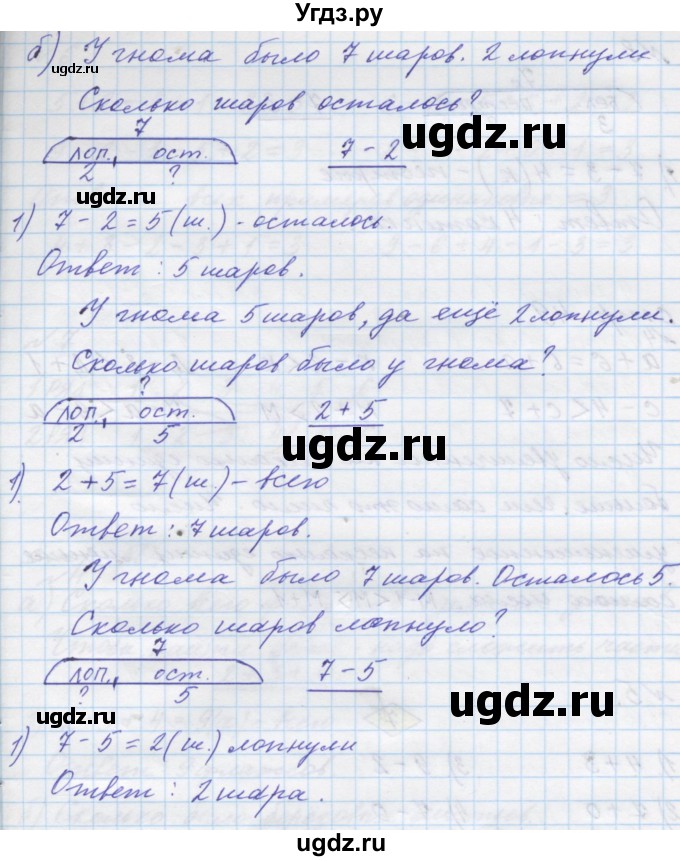 Угдз.ру
б) У гнома было 7 шаров. 2 лопнули
ugdz.ru
Сколько шаров осталось?
ugdz.ru
7
лоп. ост.
7 - 2
2 ?
ugdz.ru
1) 7 - 2 = 5 (ш.) - осталось.
Ответ: 5 шаров.
ugdz.ru
У гнома 5 шаров, да ещё 2 лопнули.
Сколько шаров было у гнома?
?
лоп. ост.
2 + 5
2 5
ugdz.ru
ugdz.ru
1) 2 + 5 = 7 (ш.) - всего
Ответ: 7 шаров.
ugdz.ru
У гнома было 7 шаров. Осталось 5.
Сколько шаров лопнуло?
7
лоп. ост.
7 - 5
? 5
ugdz.ru
ugdz.ru
1) 7 - 5 = 2 (ш.) лопнули
Ответ: 2 шара.
ugdz.ru
ugdz.ru